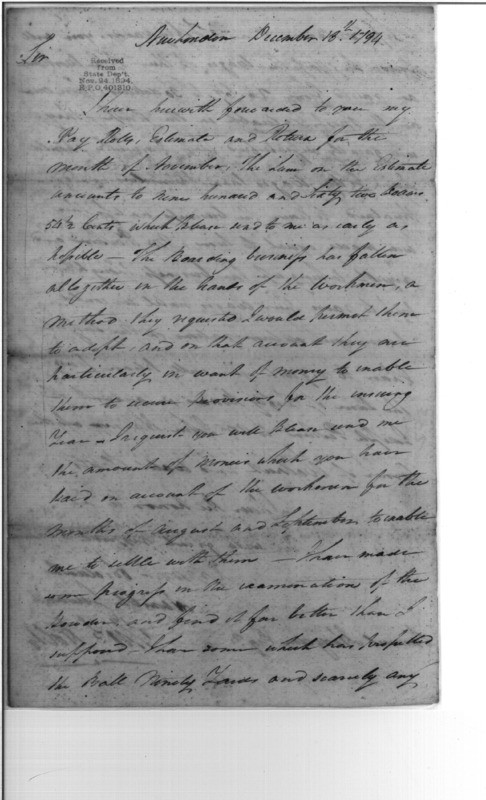 New London December 18th 1794
Sir
Received
from
State Dep't.
Nov. 24, 1894.
R. P. O. 401310.
I have herewith forwarded to you my
Pay Rolls, Estimate and Return for the
month of November. The Sum on the Estimate
amounts to nine hundred and Sixty two Dollars
54½ Cents which Please send to me as early as
Possible — The Boarding business has fallen
altogether in the hands of the workmen, a
method they requested I would permit them
to adopt, and on that account they are
particularly in want of money to enable
them to secure provisions for the ensuing
Year — I request you will Please send me
the amounts of monies which you have
Paid on account of the workmen for the
months of August and September to enable
me to settle with them — I have made
some progress in the examination of the
Powder, and find it far better than I
supposed — I have some which has propelled
the Ball Ninety Yards and scarcely any